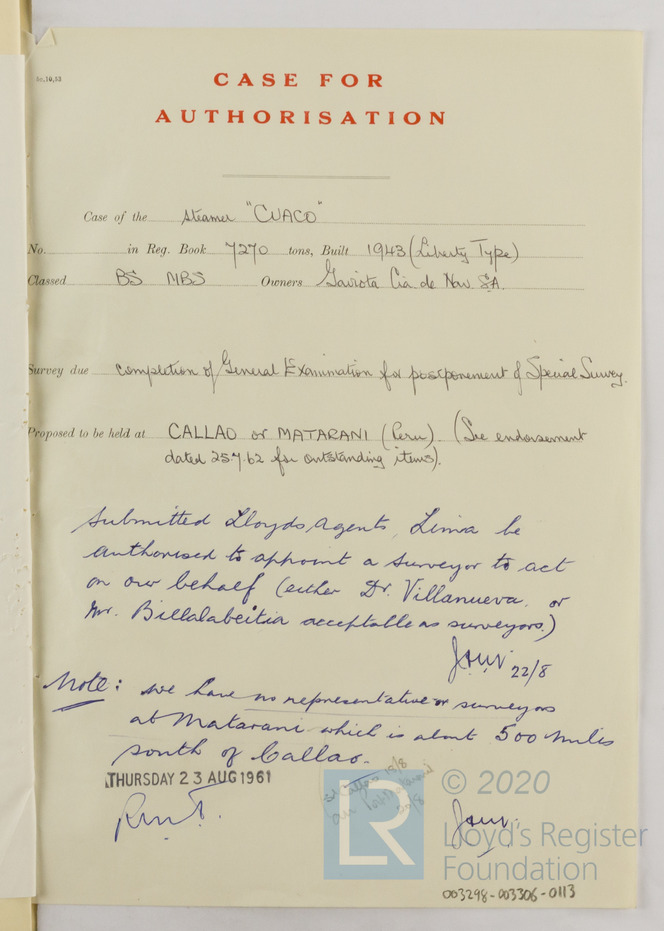 5c.10,53
CASE FOR
AUTHORISATION
Case of the steamer "CUACO"
No. in Reg. Book 7270 tons, Built 1943 (Liberty Type)
Classed BS MBS Owners Gaviota Cia de Nav. S.A.
Survey due completion of General Examination for postponement of Special Survey.
Proposed to be held at CALLAO or MATARANI (Peru). (See endorsement
dated 25.7.62 for outstanding items).
Submitted Lloyds Agents, Lima be
authorised to appoint a surveyor to act
on our behalf (either Dr. Villanueva or
Mr. Billalabeitia acceptable as surveyors.)
22/8
Note: we have no representative or surveyors
at Matarani which is about 500 miles
south of Callao.
THURSDAY 23 AUG 1961
Callao 15/8
LR
© 2020
Lloyd's Register
Foundation
003298-003306-0113